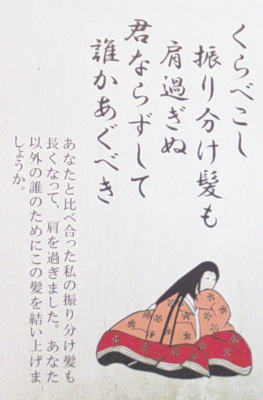 くらべこし
振り分け髪も
肩過ぎぬ
君ならずして
誰かあぐべき
あなたと比べ合った私の振り分け髪も
長くなって、肩を過ぎました。あなた
以外の誰のためにこの髪を結い上げま
しょうか。